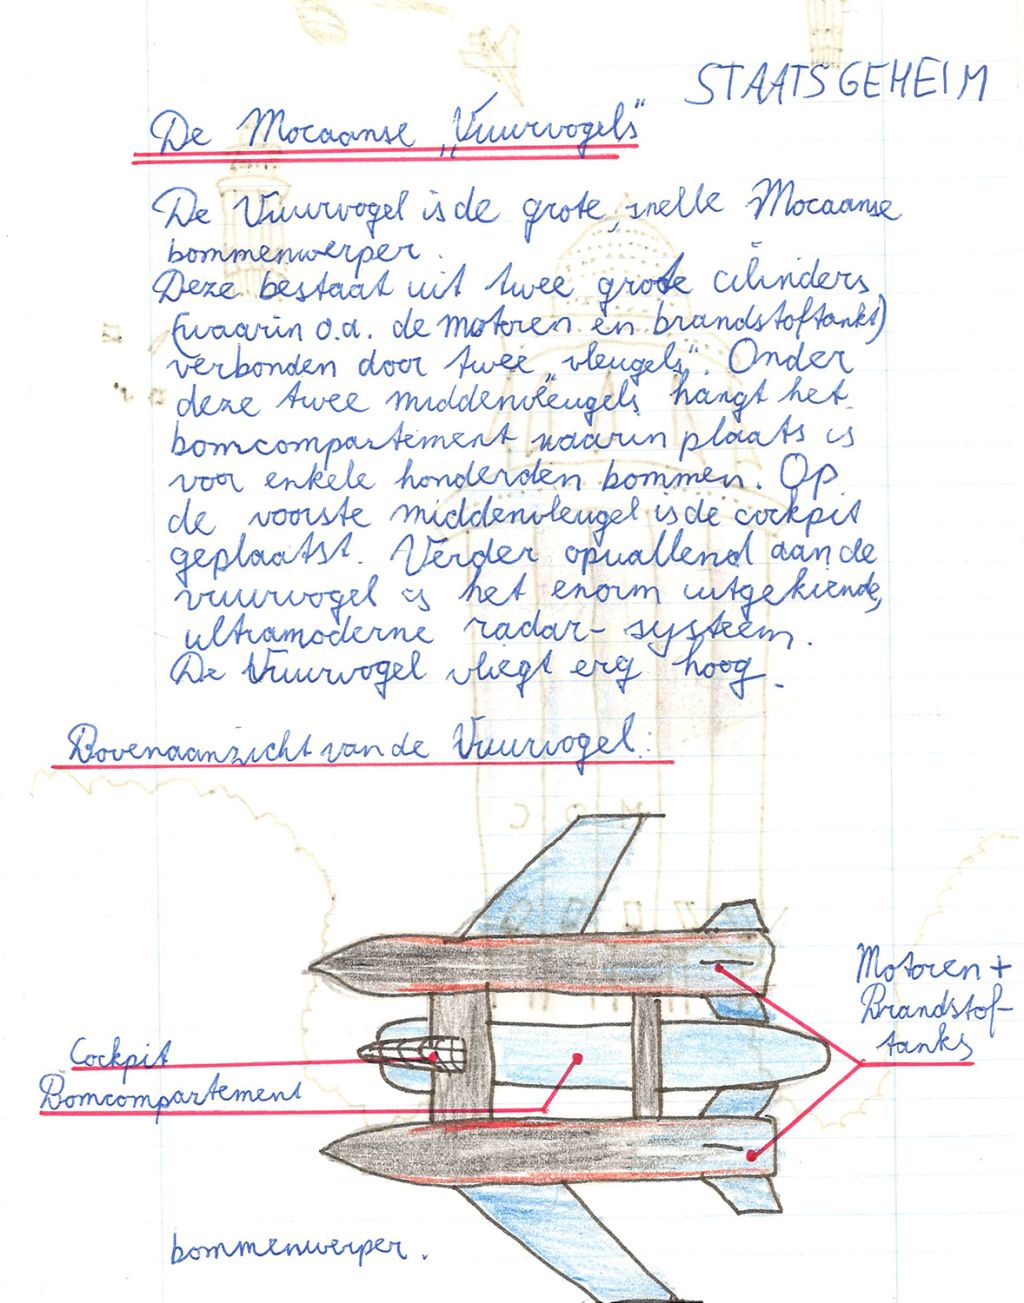 STAATSGEHEIM
De Mocaanse „Vuurvogels"
De Vuurvogel is de grote, snelle Mocaanse
bommenwerper.
Deze bestaat uit twee grote cilinders
(waarin o.a. de motoren en brandstoftanks)
verbonden door twee „vleugels". Onder
deze twee middenvleugels hangt het
bomcompartement waarin plaats is
voor enkele honderden bommen. Op
de voorste middenvleugel is de cockpit
geplaatst. Verder opvallend aan de
vuurvogel is het enorm uitgekiende,
ultramoderne radar-systeem.
De Vuurvogel vliegt erg hoog.
Bovenaanzicht van de Vuurvogel:
Motoren +
Brandstof-
tanks
Cockpit
Bomcompartement
bommenwerper.